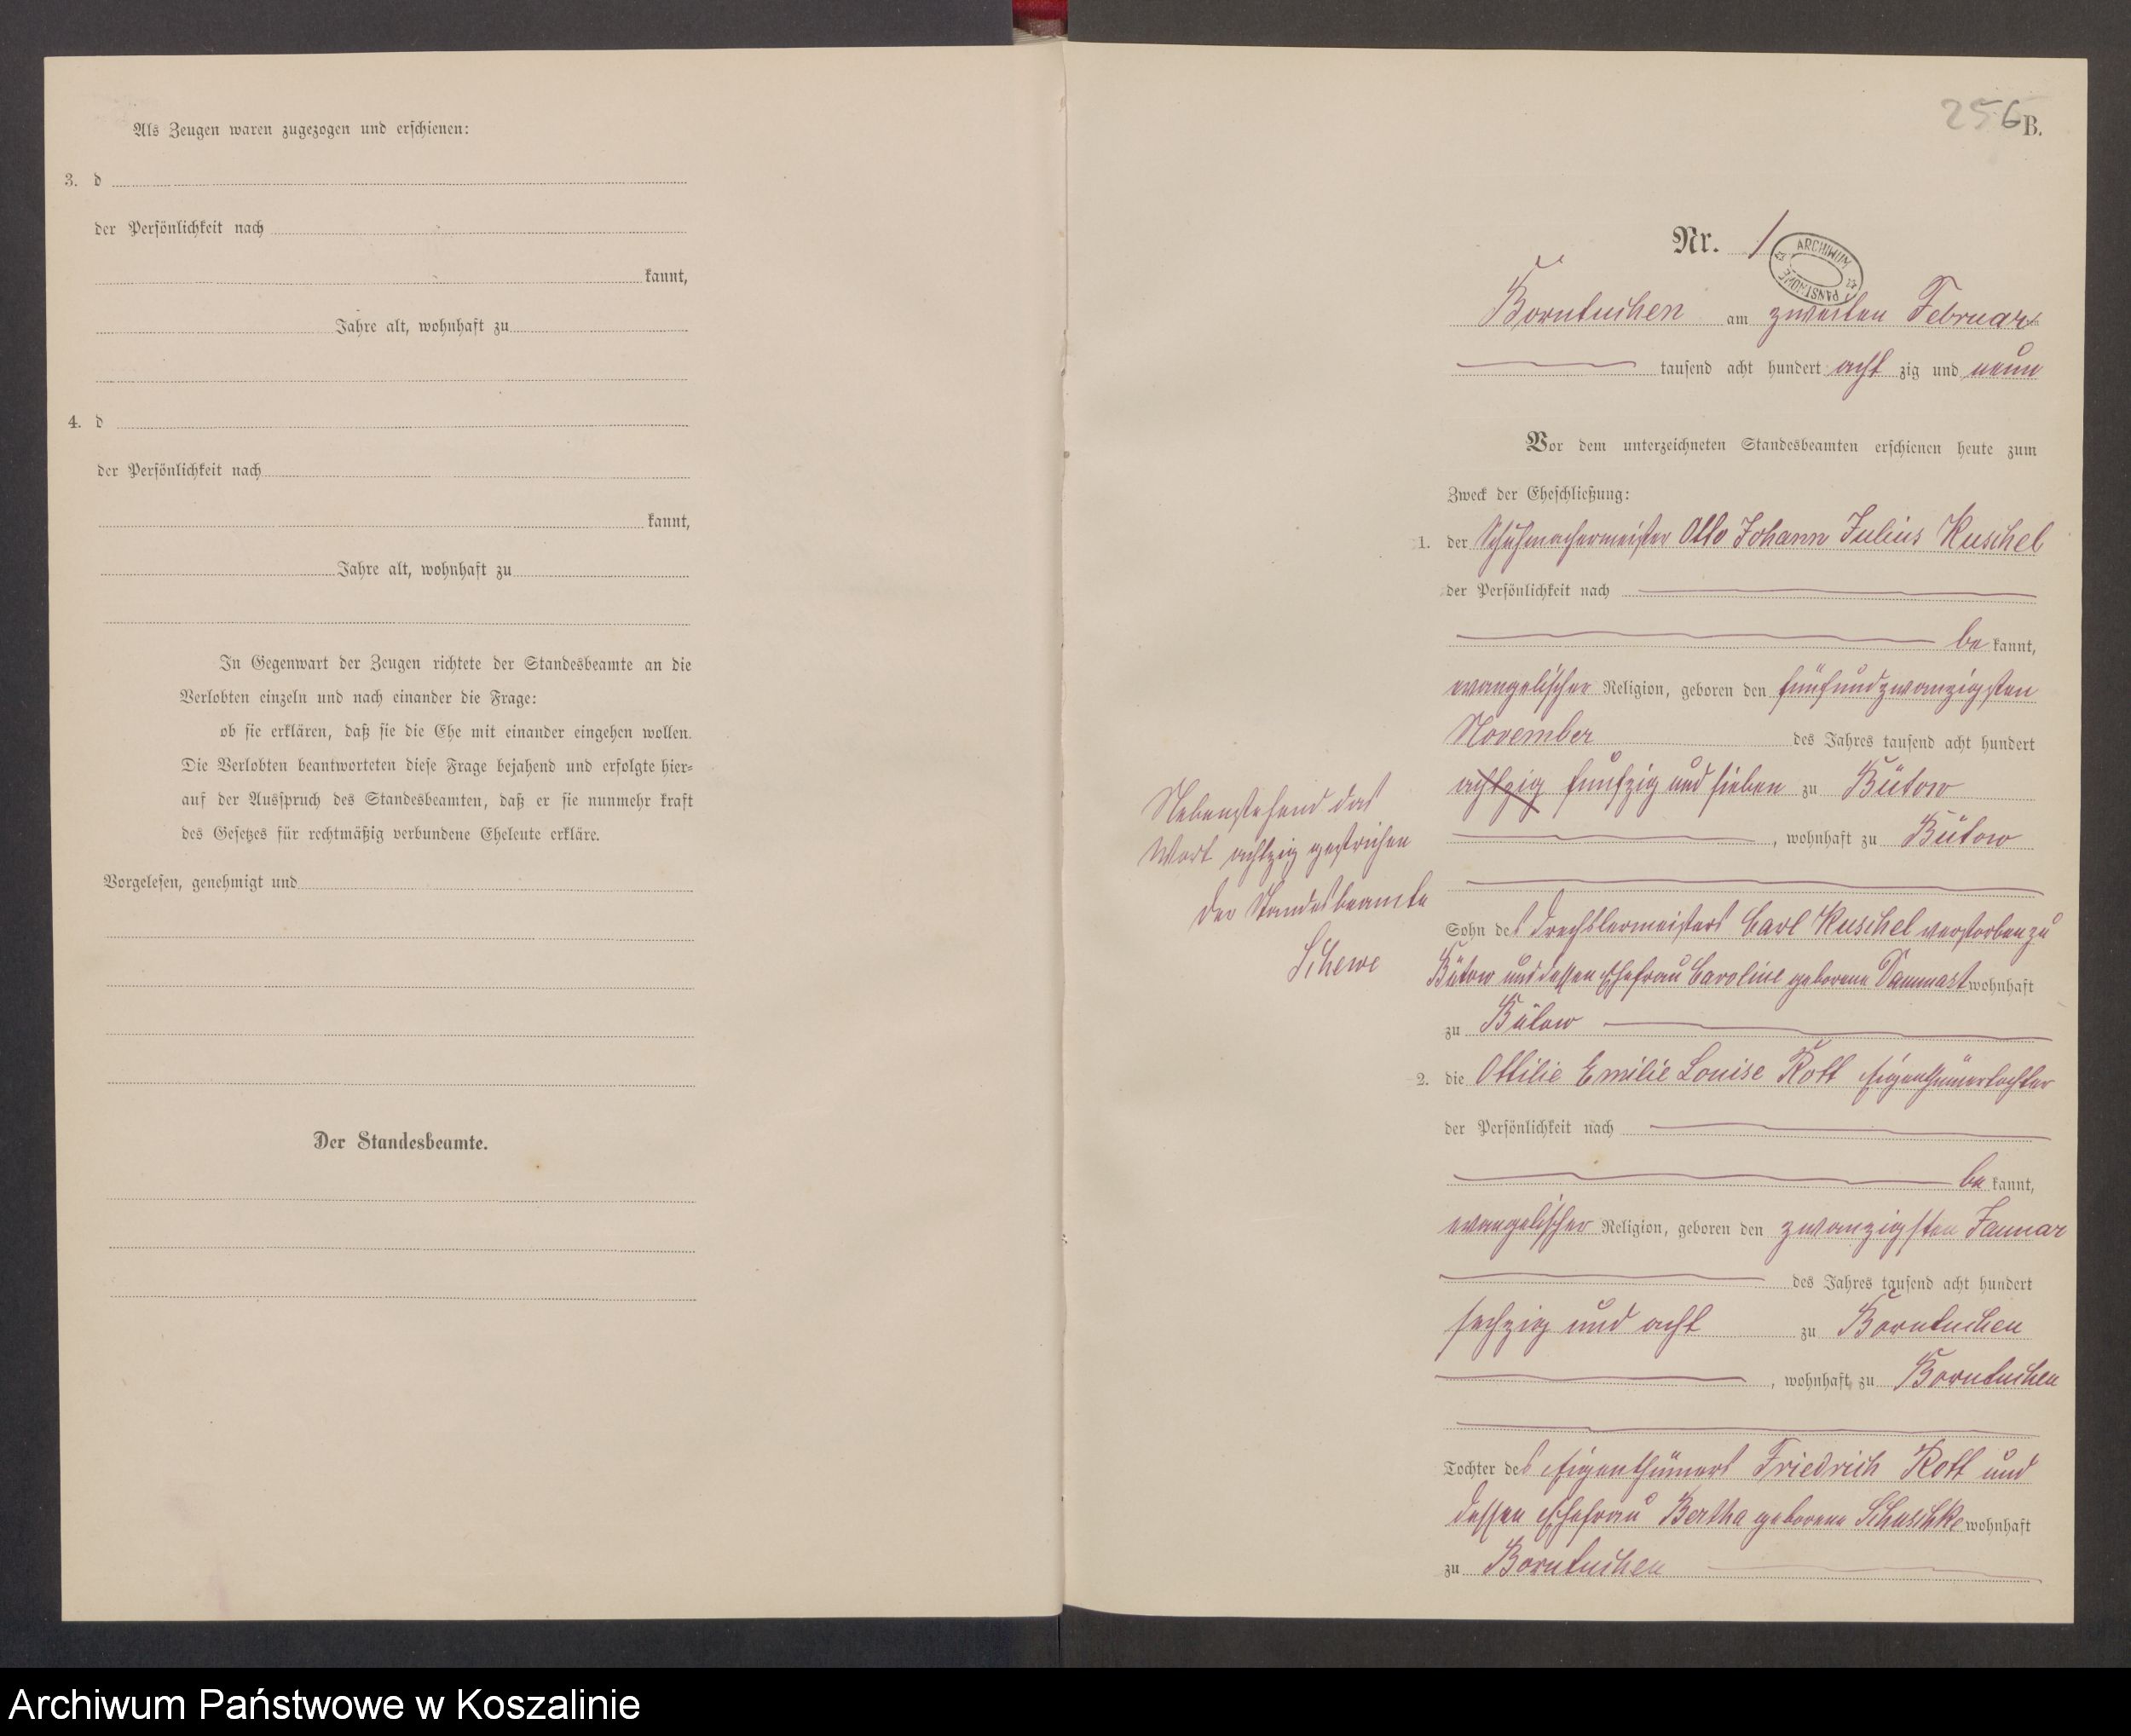 Als Zeugen waren zugezogen und erschienen:
3. d
der Persönlichkeit nach
kannt,
Jahre alt, wohnhaft zu
4. d
der Persönlichkeit nach
kannt,
Jahre alt, wohnhaft zu
In Gegenwart der Zeugen richtete der Standesbeamte an die
Verlobten einzeln und nach einander die Frage:
ob sie erklären, daß sie die Ehe mit einander eingehen wollen.
Die Verlobten beantworteten diese Frage bejahend und erfolgte hier-
auf der Ausspruch des Standesbeamten, daß er sie nunmehr kraft
des Gesetzes für rechtmäßig verbundene Eheleute erkläre.
Vorgelesen, genehmigt und
Der Standesbeamte.
256
B.
Nr. 1
ARCHIWUM PAŃSTWOWE
Borntuchen am zweiten Februar
tausend acht hundert acht zig und neun
Vor dem unterzeichneten Standesbeamten erschienen heute zum
Zweck der Eheschließung:
1. der Schuhmachermeister Otto Johann Julius Kuschel
der Persönlichkeit nach
be kannt,
evangelischer Religion, geboren den fünfundzwanzigsten
November des Jahres tausend acht hundert
achtzig fünfzig und sieben zu Bütow
, wohnhaft zu Bütow
Sohn des Drechslermeisters Carl Kuschel verstorben zu
Bütow und dessen Ehefrau Caroline geborene Dammast wohnhaft
zu Bütow
2. die Ottilie Emilie Louise Rott Eigenthümertochter
der Persönlichkeit nach
be kannt,
evangelischer Religion, geboren den zwanzigsten Januar
des Jahres tausend acht hundert
sechzig und acht zu Borntuchen
, wohnhaft zu Borntuchen
Tochter des Eigenthümers Friedrich Rott und
dessen Ehefrau Bertha geborene Schuschke wohnhaft
zu Borntuchen
Nebenstehend das
Wort achtzig gestrichen
Der Standesbeamte
Schewe
Archiwum Państwowe w Koszalinie